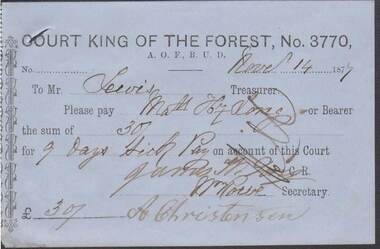 COURT KING OF THE FOREST, No. 3770,
A. O. F., B. U. D.
No. Novr 14 1877
To Mr Lewis Treasurer
Please pay or Bearer
the sum of 30/
for 9 days Sick Pay on account of this Court
C. R.
Secretary.
£ 30/ A Christensen